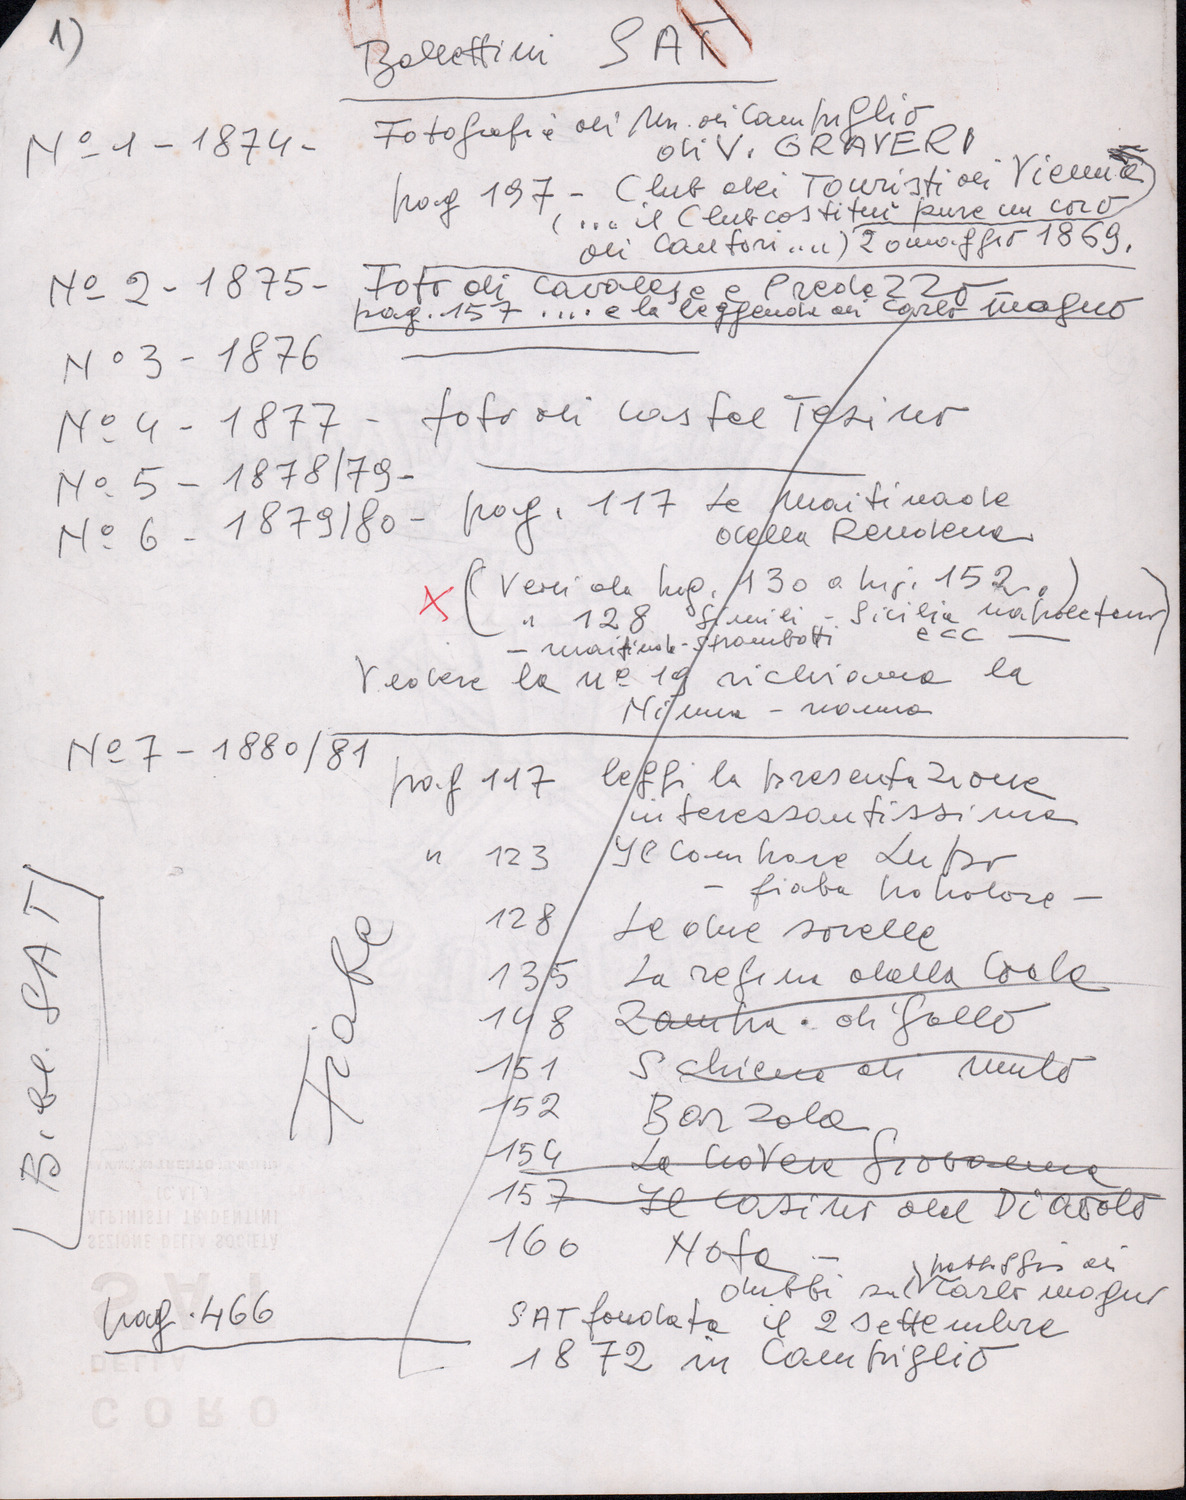 1)
Bollettini SAT
Nº 1 - 1874 - Fotografie di Mn. di Campiglio
di V. GRAVERI
pag 197 - Club dei Touristi di Vienna
(... il Club costituì pure un coro
di Cantori ...) 20 maggio 1869.
Nº 2 - 1875 - Foto di Cavalese e Predazzo
pag. 157 .... e la leggenda di Carlo magno
Nº 3 - 1876
Nº 4 - 1877 - foto di Castel Tesino
Nº 5 - 1878/79 -
Nº 6 - 1879/80 - pag. 117 Le maitinade
della Rendena
x (Versi da pag. 130 a pag. 152.)
" 128 simili - Sicilia napoletane)
- maitinade - strambotti ecc
Vedere la nº 19 richiama la
Ninna - nanna
Nº 7 - 1880/81
pag 117 leggi la presentazione
interessantissima
" 123 Il Compare Lupo
- fiaba popolare -
128 Le due sorelle
135 La regina dalla Coda
148 Zampa di Gallo
151 Schiena di mulo
152 Barzola
154 La povera Giovanna
157 Il Casino del Diavolo
160 Nota -
dubbi sul passaggio di
Carlo magno
Fiabe
Bibl. SAT
pag. 466
SAT fondata il 2 settembre
1872 in Campiglio
TRENTO
(C.A.I.)
ALPINISTI TRIDENTINI
SEZIONE DELLA SOCIETÀ
SAT
DELLA
CORO